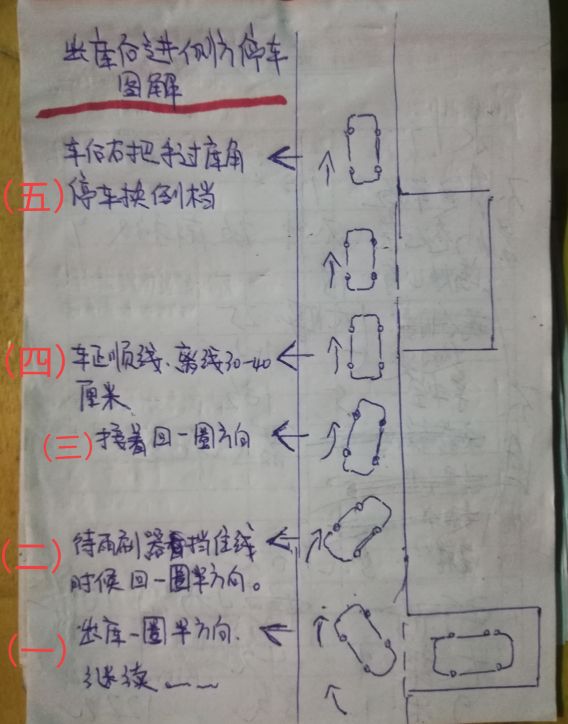 出库后进侧方停车
图解
车后右把手过库角
(五)停车换倒档
(四)车正顺线、离线30-40
厘米
(三)接着回一圈方向
(二)待雨刷器挡住线
时候回一圈半方向。
(一)出库一圈半方向、
继续